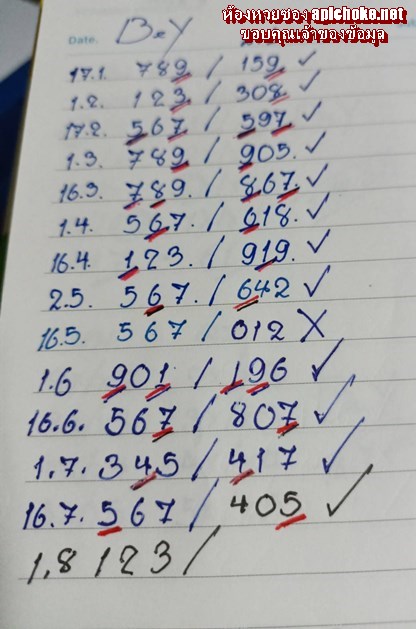 ห้องหวยซอง apichoke.net
ขอบคุณเจ้าของข้อมูล
Date. BeY
17.1. 789 / 159 ✓
1.2. 123 / 308 ✓
17.2. 567 / 597 ✓
1.3. 789 / 905. ✓
16.3. 789. / 867. ✓
1.4. 567. / 618. ✓
16.4. 123. / 919. ✓
2.5. 567. / 642 ✓
16.5. 567 / 012 X
1.6 901 / 196 ✓
16.6. 567 / 807 ✓
1.7. 345 / 417 ✓
16.7. 567 / 405 ✓
1.8 123 /